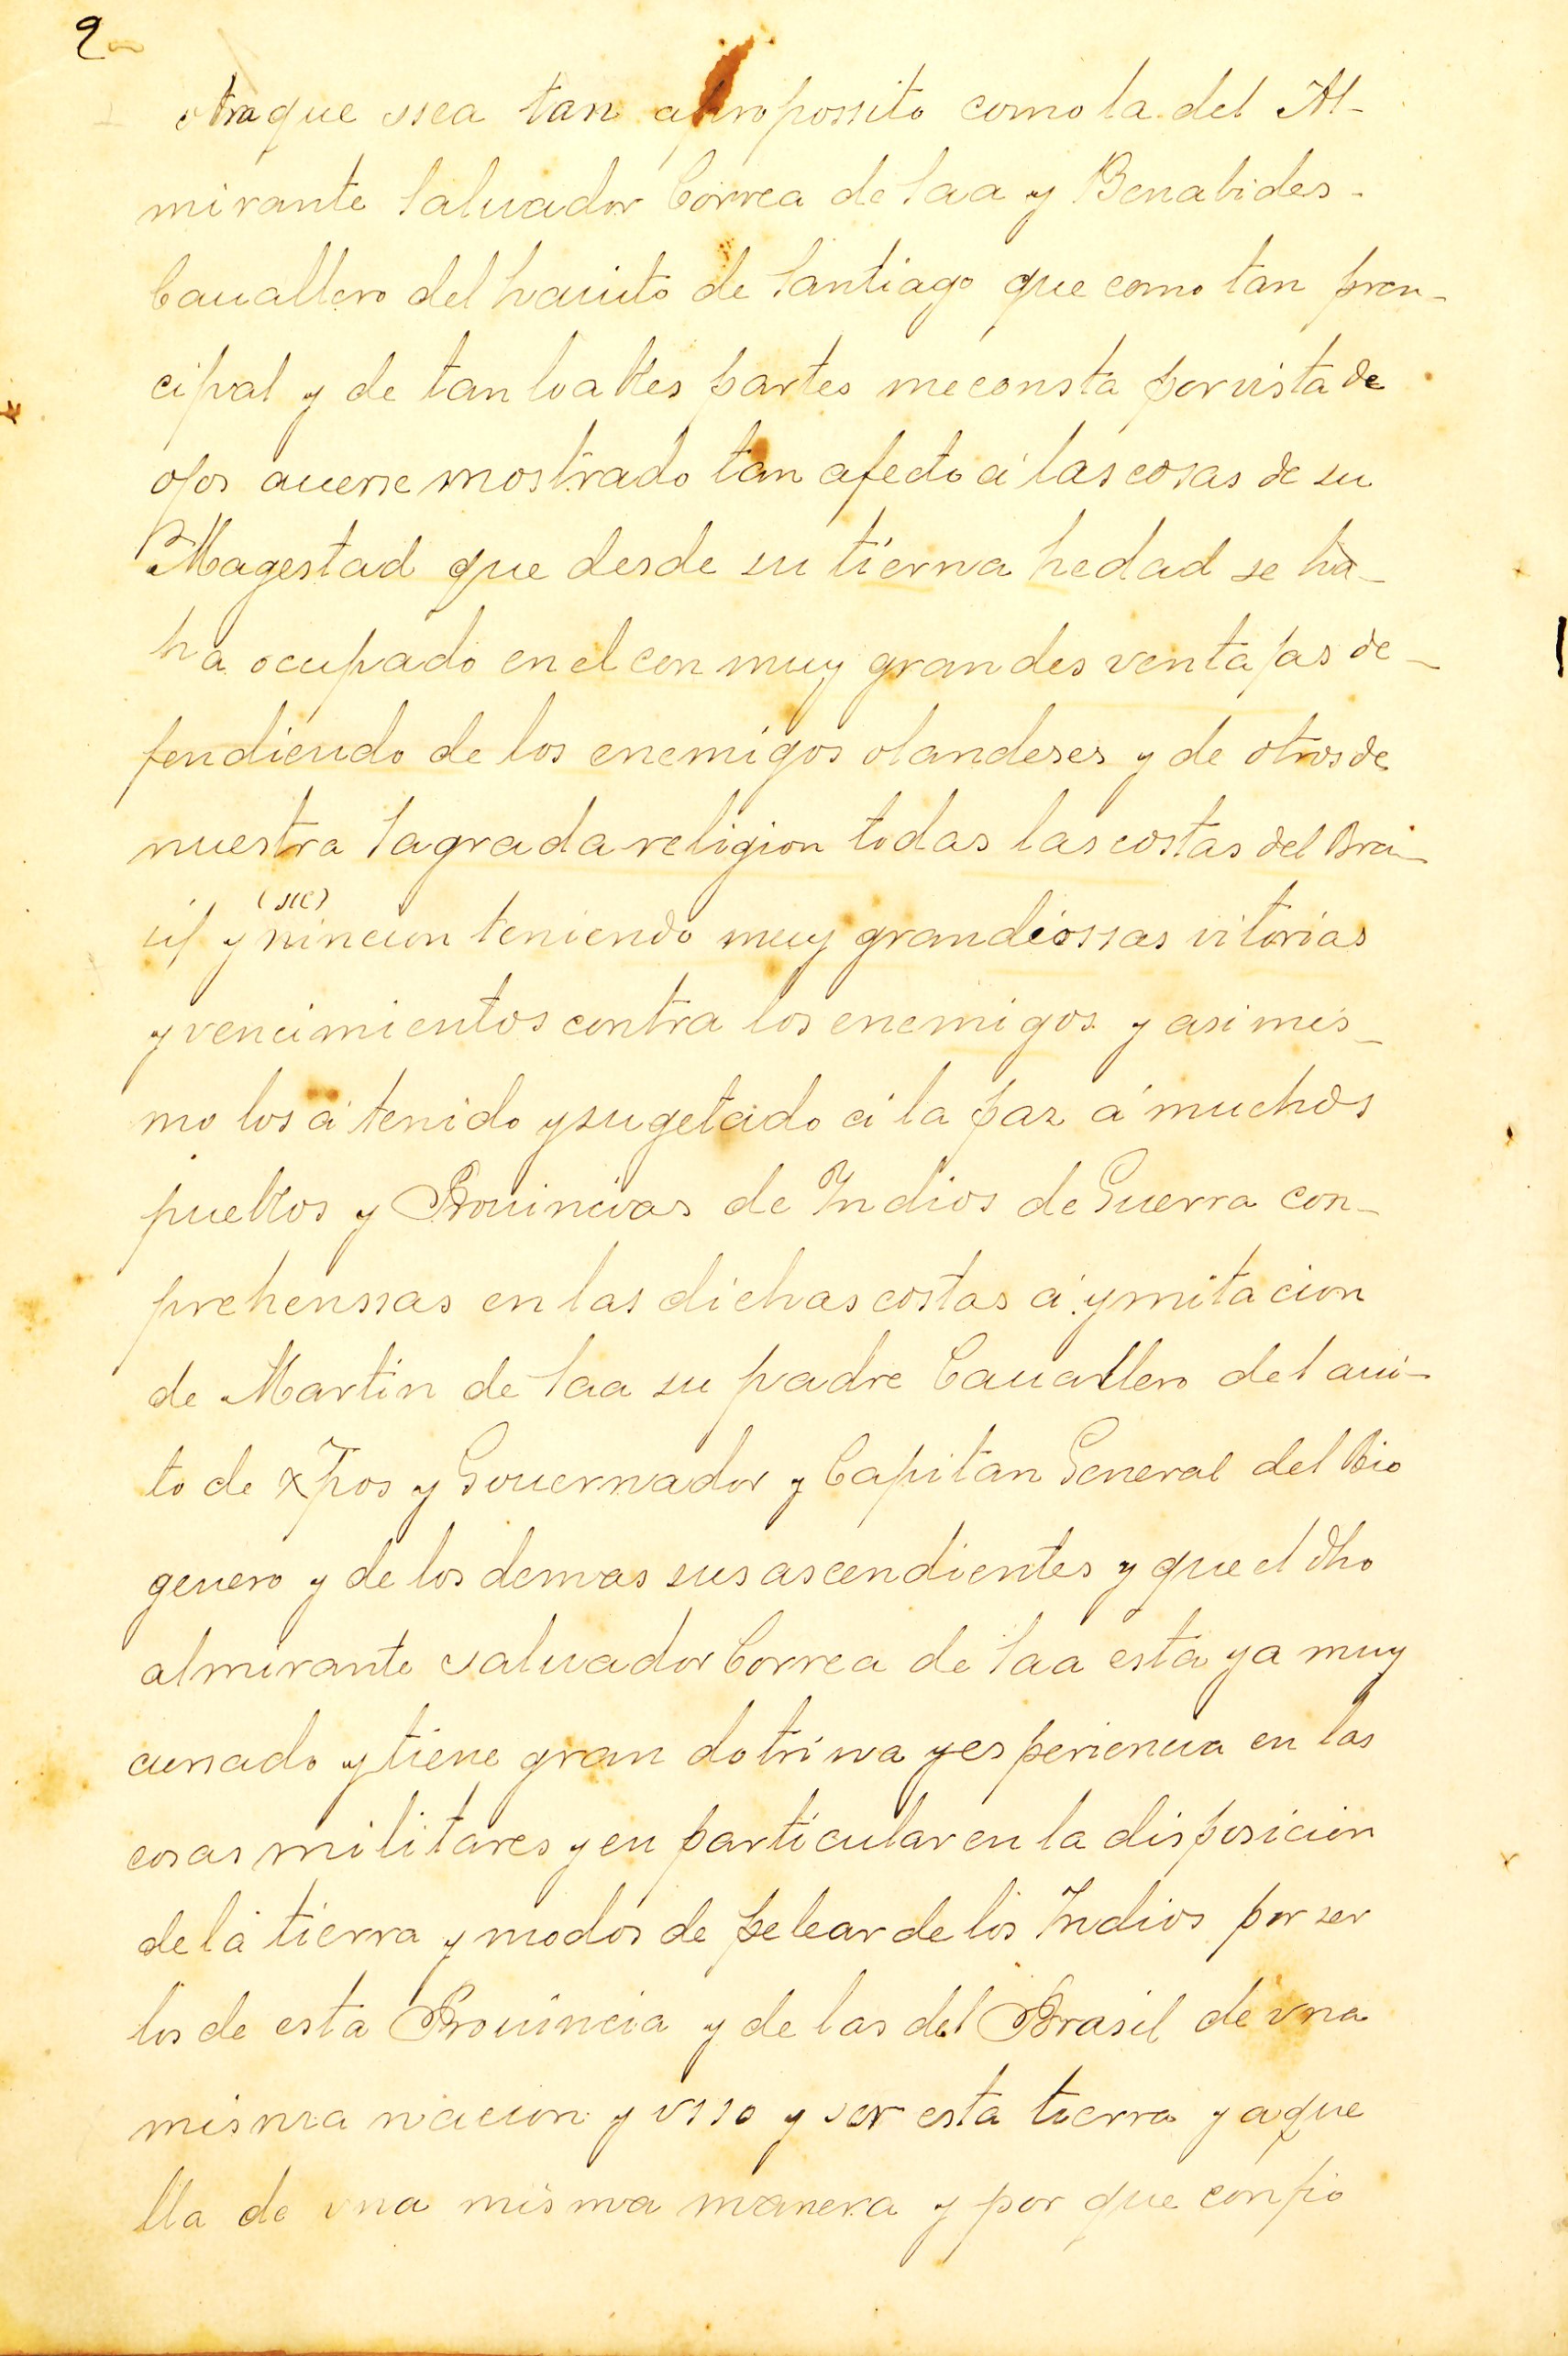 2
otra que ssea tan apropossito como la del Al-
mirante Saluador Correa de Saa y Benabides-
Cauallero del hauito de Santiago que como tan pren-
cipal y de tan loables partes me consta por vista de
ojos auerse mostrado tan afecto á las cosas de su
Magestad que desde su tierna hedad se ha-
ha ocupado en el con muy grandes ventajas de-
fendiendo de los enemigos olandeses y de otros de
nuestra Sagrada religion todas las costas del Bra-
(sic)
sil y nincion teniendo muy grandiossas vitorias
y vencimientos contra los enemigos y asi mis-
mo los á tenido y sugetado á la paz á muchos
pueblos y Prouincias de Indios de Guerra con-
prehenssas en las dichas costas á ymitacion
de Martin de Saa su padre Cauallero del aui-
to de xpos y Gouernador y Capitan General del Rio
genero y de los demas sus ascendientes y que el dho
almirante saluador Correa de Saa esta ya muy
cursado y tiene gran dotrina y esperiencia en las
cosas militares y en particular en la disposicion
de la tierra y modos de pelear de los Indios por ser
los de esta Prouincia y de las del Brasil de vna
misma nacion y vsso y ser esta tierra y aque
lla de vna misma manera y por que confio